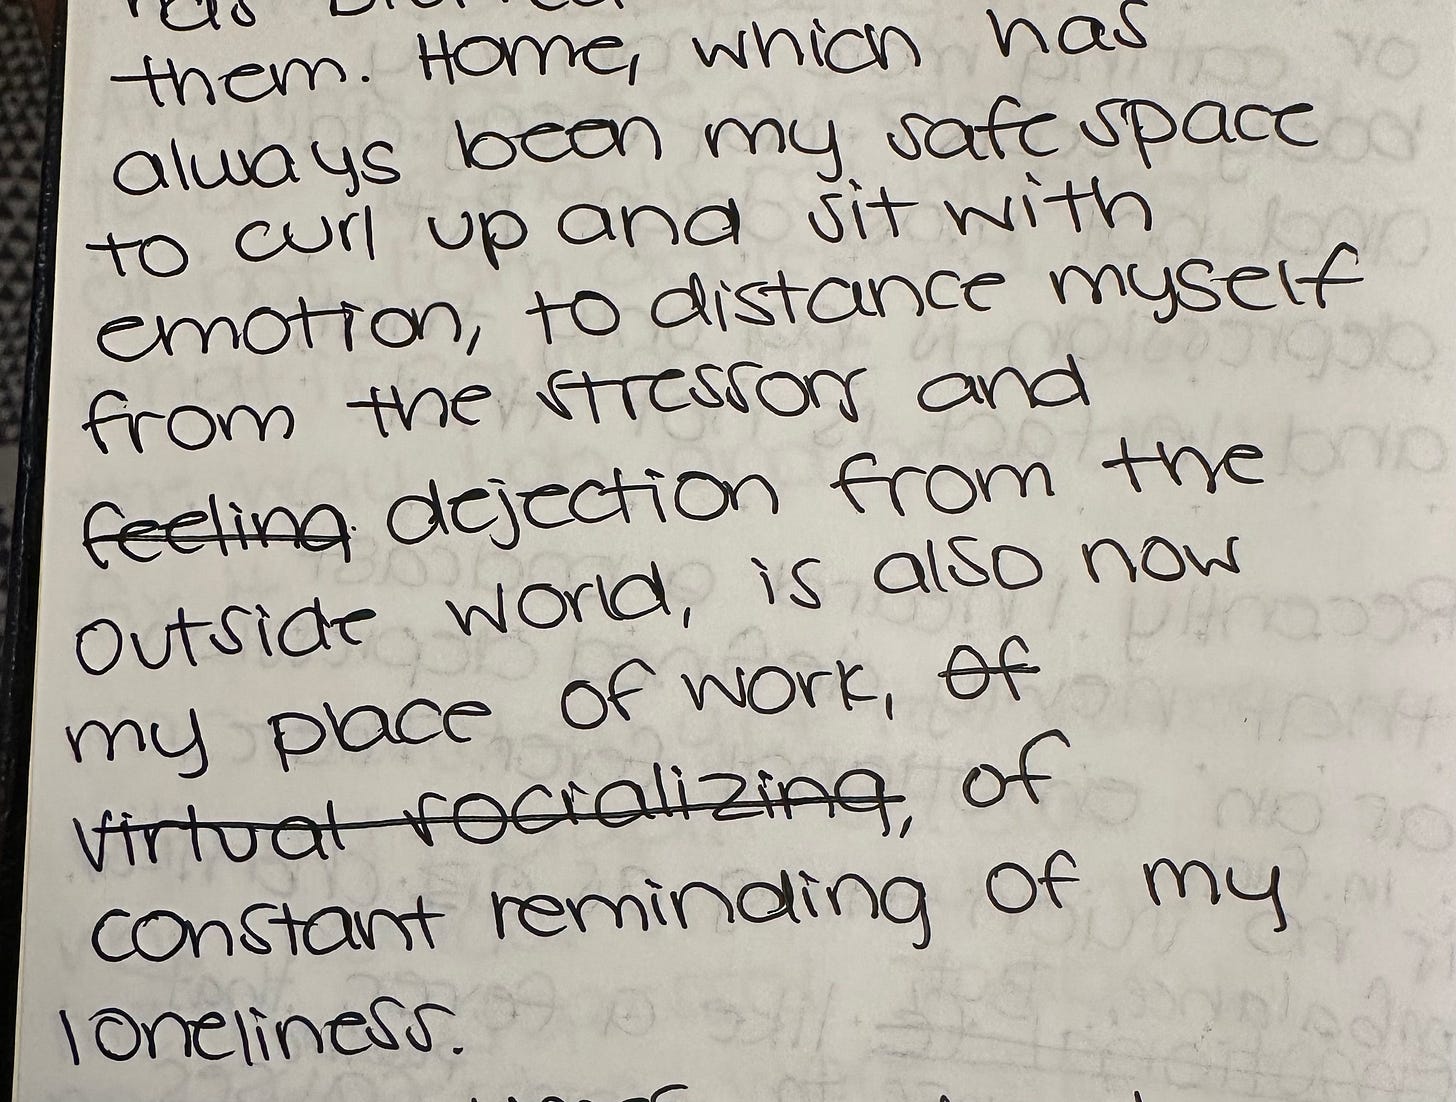 them. Home, which has
always been my safe space
to curl up and sit with
emotion, to distance myself
from the stressors and
feeling dejection from the
outside world, is also now
my place of work, of
virtual socializing, of
constant reminding of my
loneliness.